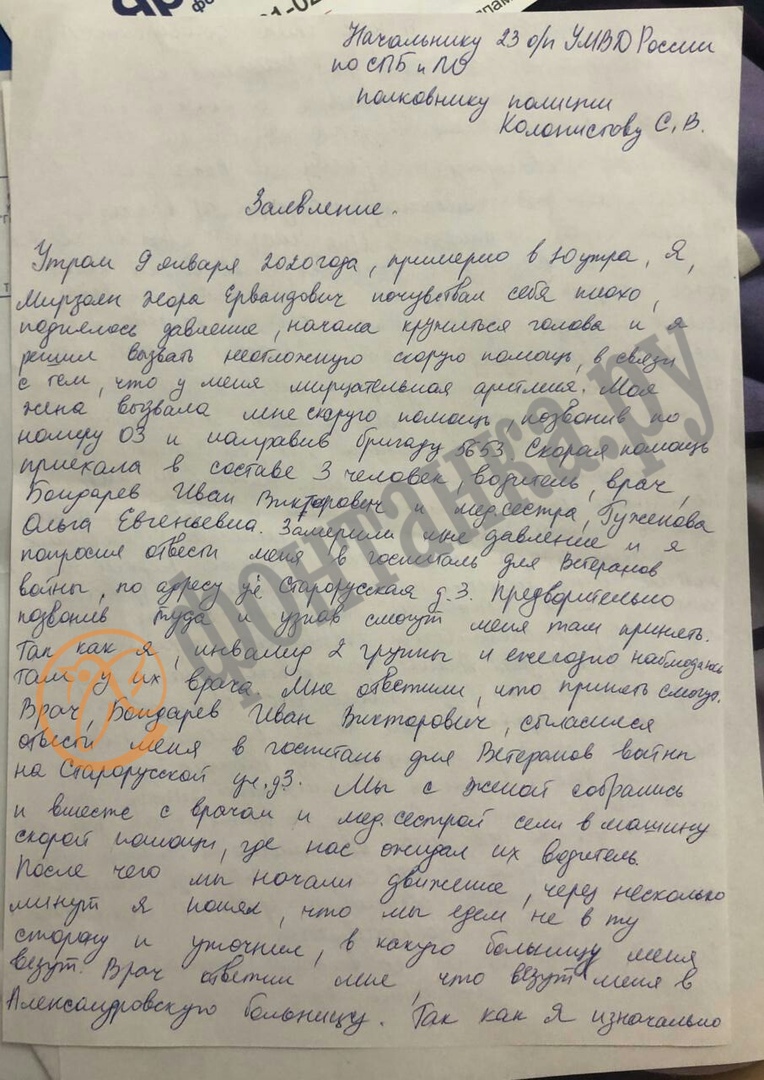 Начальнику 23 о/п УМВД России
по СПБ и ЛО
полковнику полиции
Колонистову С.В.
Заявление.
Утром 9 января 2020 года, примерно в 10 утра, Я,
Мирзоян Жора Ервандович почувствал себя плохо,
поднялось давление, начала кружиться голова и я
решил вызвать неотложную скорую помощь, в связи
с тем, что у меня мирцательная аритмия. Моя
жена вызвала мне скорую помощь, позвонив по
номеру 03 и направив бригаду 5653 Скорая помощь
приехала в составе 3 человек, водитель, врач,
Бондарев Иван Викторович и мед.сестра, Гуженкова
Ольга Евгеньевна. Замерили мне давление и я
попросил отвести меня в госпиталь для Ветеранов
войны, по адресу ул. Старорусская д.3. Предворительно
позвонив туда и узнав смогут меня там принять.
Так как я, инвалид 2 группы и ежегодно наблюдаюсь
там у их врача Мне ответили, что принять смогут.
Врач, Бондарев Иван Викторович, сыласился
отвести меня в госпиталь для Ветеранов войны
на Старорусской ул. д3. Мы с женой собрались
и вместе с врачом и мед.сестрой сели в машину
скорой помощи, где нас ожидал их водитель.
После чего мы начали движение, через несколько
минут я понял, что мы едем не в ту
сторону и уточнил, в какую больницу меня
везут. Врач ответил мне, что везут меня в
Александровскую больницу. Так как Я изначально
фонтанка.ру